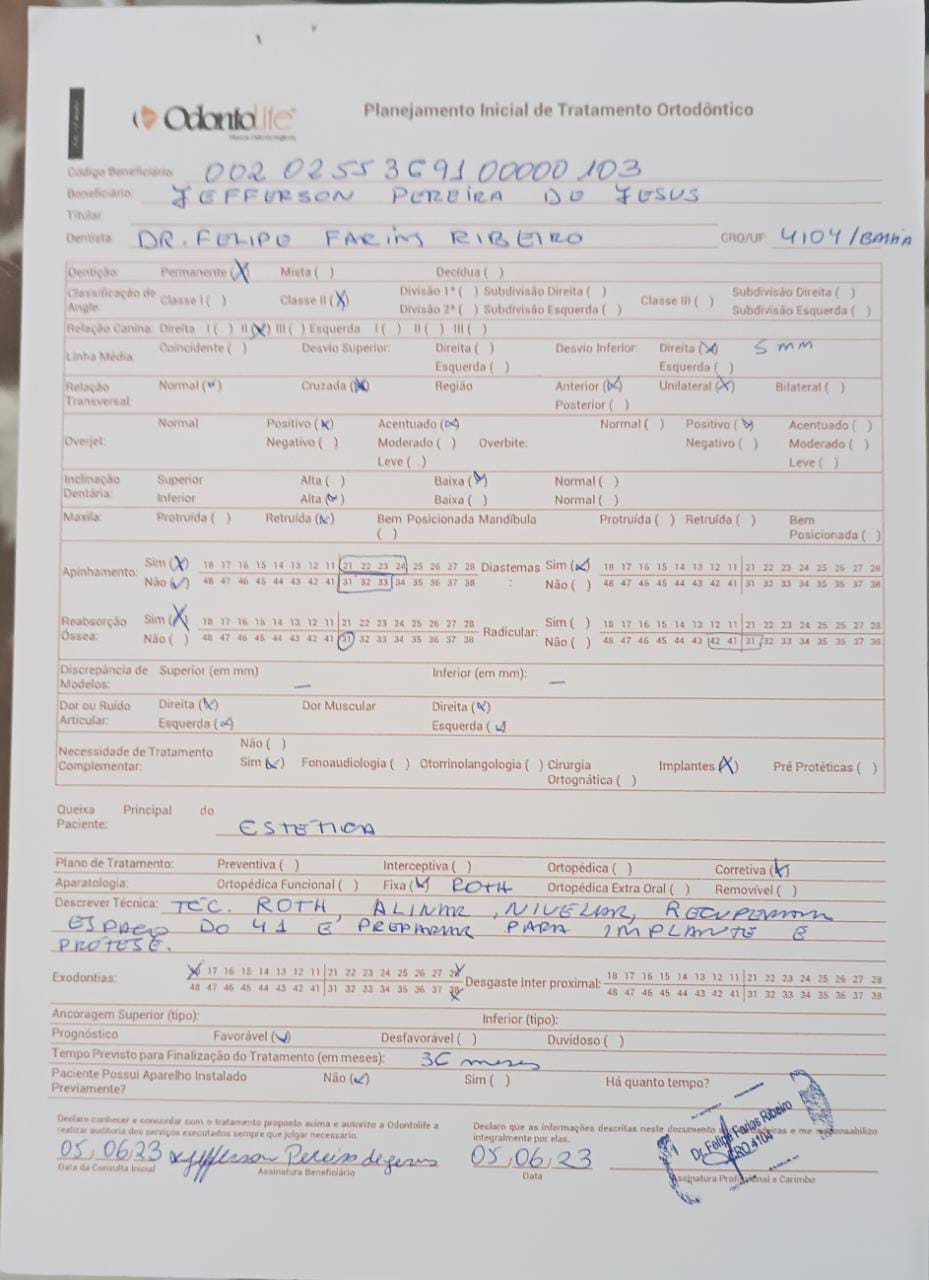 OdontoLife
Planos Odontológicos
Planejamento Inicial de Tratamento Ortodôntico
Código Beneficiário: 002 0255369100000103
Beneficiário: JEFFERSON PEREIRA DE JESUS
Titular:
Dentista: DR. FELIPE FARIAS RIBEIRO CRO/UF: 4104/BAHIA
Dentição: Permanente (X) Mista ( ) Decídua ( )
Classificação de Angle: Classe I ( ) Classe II (X) Divisão 1ª ( ) Subdivisão Direita ( ) Classe III ( ) Subdivisão Direita ( )
Divisão 2ª ( ) Subdivisão Esquerda ( ) Subdivisão Esquerda ( )
Relação Canina: Direita I ( ) II (X) III ( ) Esquerda I ( ) II ( ) III ( )
Linha Média: Coincidente ( ) Desvio Superior: Direita ( ) Desvio Inferior: Direita (X) 5 mm
Esquerda ( ) Esquerda ( )
Relação Transversal: Normal (X) Cruzada (X) Região Anterior (X) Unilateral (X) Bilateral ( )
Posterior ( )
Normal Positivo (X) Acentuado (X) Normal ( ) Positivo (X) Acentuado ( )
Overjet: Negativo ( ) Moderado ( ) Overbite: Negativo ( ) Moderado ( )
Leve ( ) Leve ( )
Inclinação Dentária: Superior Alta ( ) Baixa (X) Normal ( )
Inferior Alta (X) Baixa ( ) Normal ( )
Maxila: Protruída ( ) Retruída (X) Bem Posicionada ( ) Mandíbula Protruída ( ) Retruída ( ) Bem Posicionada ( )
Apinhamento: Sim (X) 18 17 16 15 14 13 12 11 21 22 23 24 25 26 27 28 Diastemas: Sim (X) 18 17 16 15 14 13 12 11 21 22 23 24 25 26 27 28
Não (✓) 48 47 46 45 44 43 42 41 31 32 33 34 35 36 37 38 Não ( ) 48 47 46 45 44 43 42 41 31 32 33 34 35 36 37 38
Reabsorção Óssea: Sim (X) 18 17 16 15 14 13 12 11 21 22 23 24 25 26 27 28 Radicular: Sim ( ) 18 17 16 15 14 13 12 11 21 22 23 24 25 26 27 28
Não ( ) 48 47 46 45 44 43 42 41 31 32 33 34 35 36 37 38 Não ( ) 48 47 46 45 44 43 42 41 31 32 33 34 35 36 37 38
Discrepância de Modelos: Superior (em mm) — Inferior (em mm): —
Dor ou Ruído Articular: Direita (X) Dor Muscular Direita (X)
Esquerda (X) Esquerda (X)
Necessidade de Tratamento Complementar: Não ( )
Sim (X) Fonoaudiologia ( ) Otorrinolangologia ( ) Cirurgia Ortognática ( ) Implantes (X) Pré Protéticas ( )
Queixa Principal do Paciente: ESTETICA
Plano de Tratamento: Preventiva ( ) Interceptiva ( ) Ortopédica ( ) Corretiva (X)
Aparatologia: Ortopédica Funcional ( ) Fixa (X) ROTH Ortopédica Extra Oral ( ) Removível ( )
Descrever Técnica: TEC. ROTH, ALINAR, NIVELAR, RECUPERAR
ESPAÇO DO 41 E PREPARAR PARA IMPLANTE E
PROTESE.
Exodontias: 18 17 16 15 14 13 12 11 21 22 23 24 25 26 27 28 Desgaste Inter proximal: 18 17 16 15 14 13 12 11 21 22 23 24 25 26 27 28
48 47 46 45 44 43 42 41 31 32 33 34 35 36 37 38 48 47 46 45 44 43 42 41 31 32 33 34 35 36 37 38
Ancoragem Superior (tipo): Inferior (tipo):
Prognóstico Favorável (X) Desfavorável ( ) Duvidoso ( )
Tempo Previsto para Finalização do Tratamento (em meses): 36 meses
Paciente Possui Aparelho Instalado Previamente? Não (X) Sim ( ) Há quanto tempo?
Declaro conhecer e concordar com o tratamento proposto acima e autorizo a Odontolife a
realizar auditoria dos serviços executados sempre que julgar necessário.
Declaro que as informações descritas neste documento e me responsabilizo
integralmente por elas.
05,06,23 x Jefferson Pereira de Jesus 05,06,23
Data da Consulta Inicial Assinatura Beneficiário Data Assinatura Profissional e Carimbo
Dr. Felipe Farias Ribeiro
CRO 4104